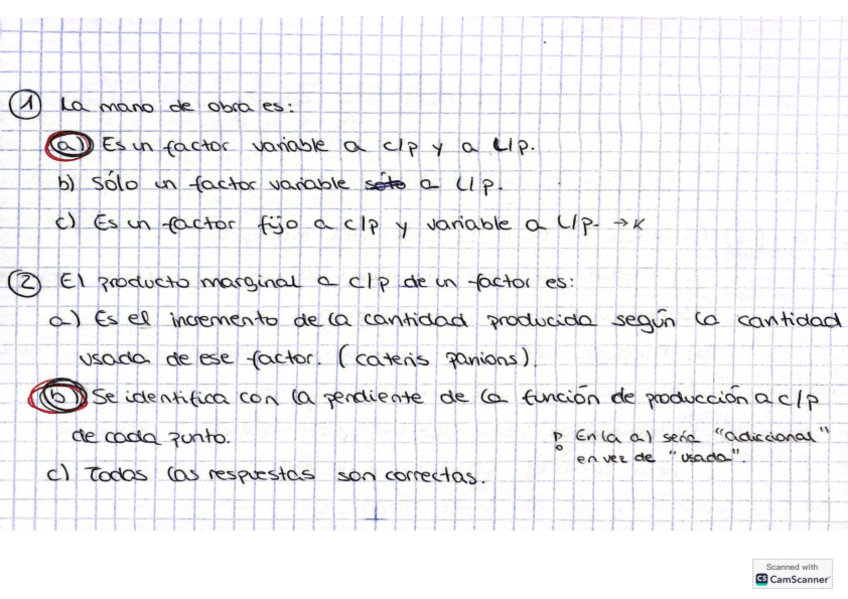 ① La mano de obra es:
a) Es un factor variable a c/p y a L/p.
b) Sólo un factor variable sólo a L/p.
c) Es un factor fijo a c/p y variable a L/p. → K
② El producto marginal a c/p de un factor es:
a) Es el incremento de la cantidad producida según la cantidad
usada de ese factor. (cateris panions).
b) Se identifica con la pendiente de la función de producción a c/p
de cada punto.
En la a) sería "adiccional"
en vez de "usada".
c) Todas las respuestas son correctas.
Scanned with
CS CamScanner